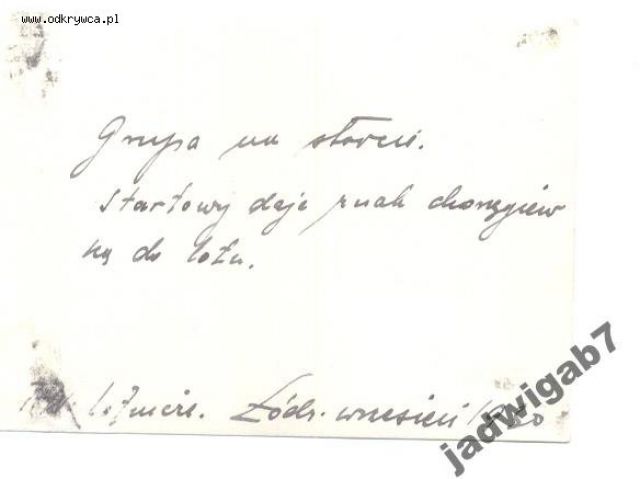 www.odkrywca.pl
Grupa na starcie.
Startowy daje znak chorągiew
ką do lotu.
lotnicze. Łódź. wrzesień
jadwigab7